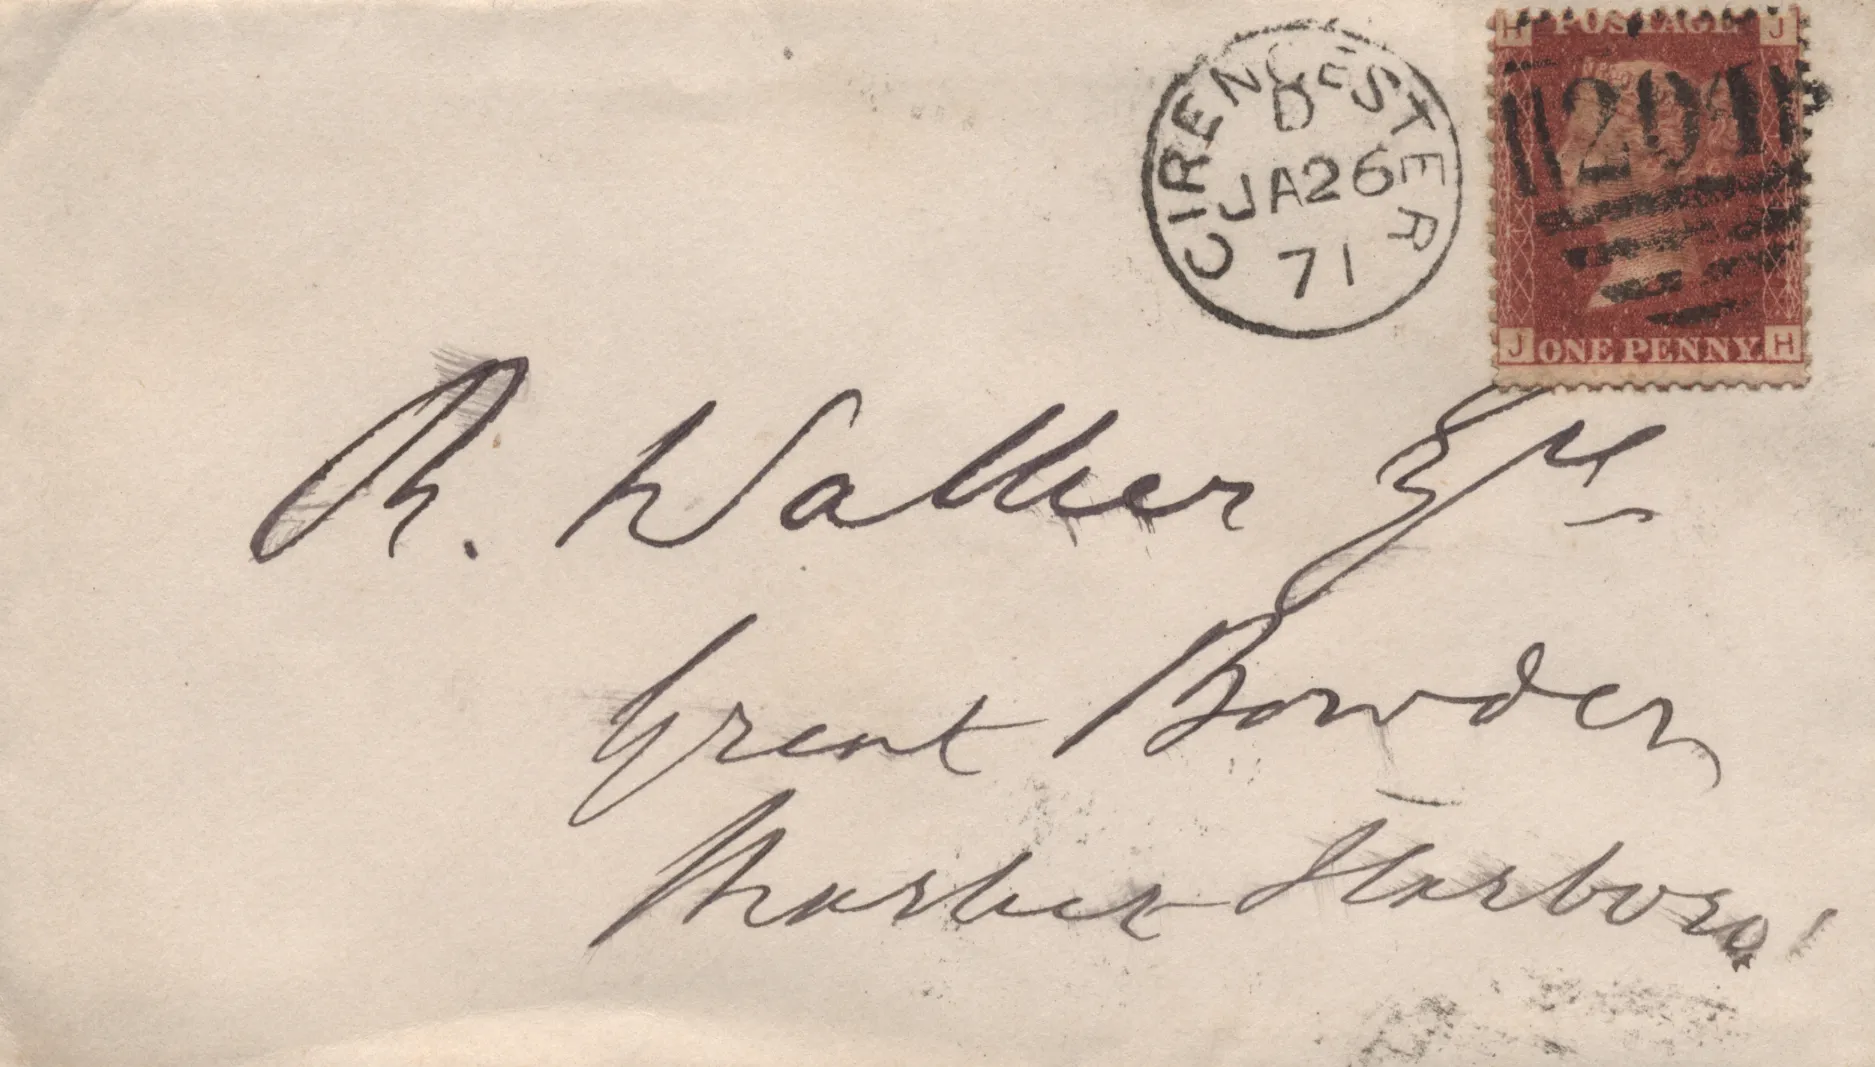 CIRENCESTER
D
JA 26
71
H POSTAGE J
201
J ONE PENNY. H
R. Walker Esqre
Great Bowden
Market Harboro'